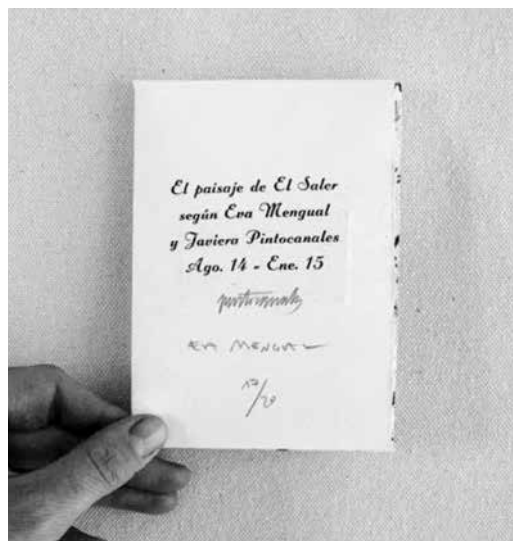 El paisaje de El Saler
según Eva Mengual
y Javiera Pintocanales
Ago. 14 - Ene. 15
pintocanales
EVA MENGUAL
17/20